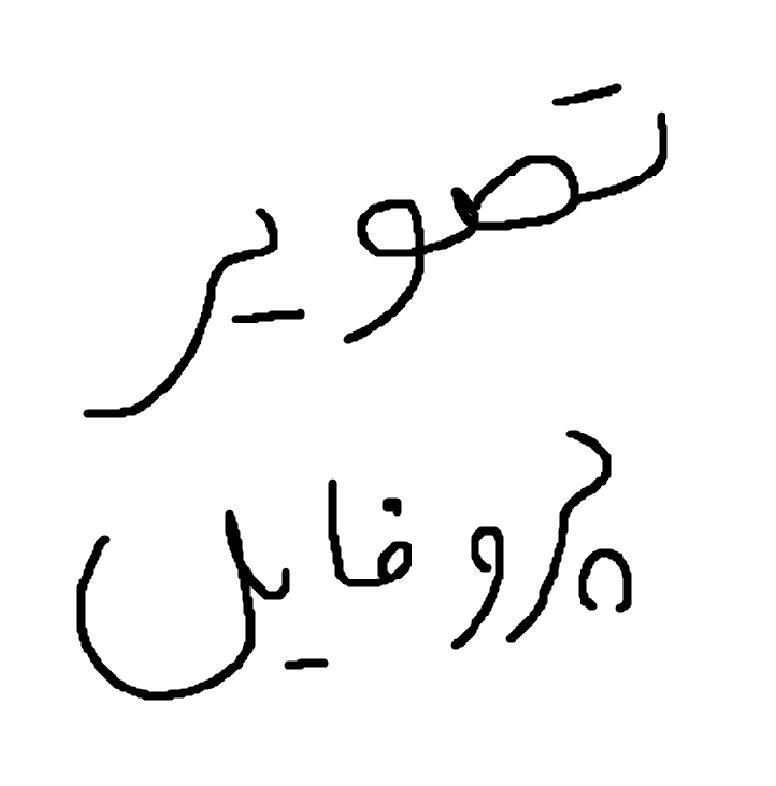 تصویر
پروفایل